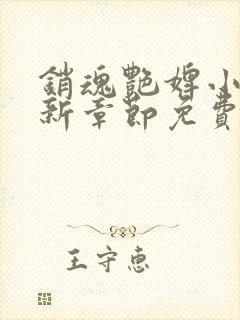 銷魂艷婢小
新章節免費
王守惠